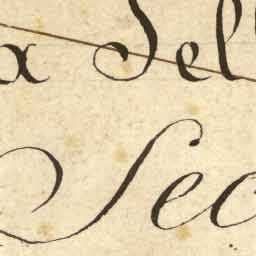 x Sell
Sec